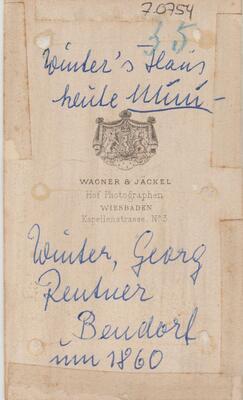 7.0754
35
Winter's Haus
heute
WAGNER & JÄCKEL
Hof Photographen
WIESBADEN
Kapellenstrasse. No 3
Winter, Georg
Rentner
Bendorf
um 1860